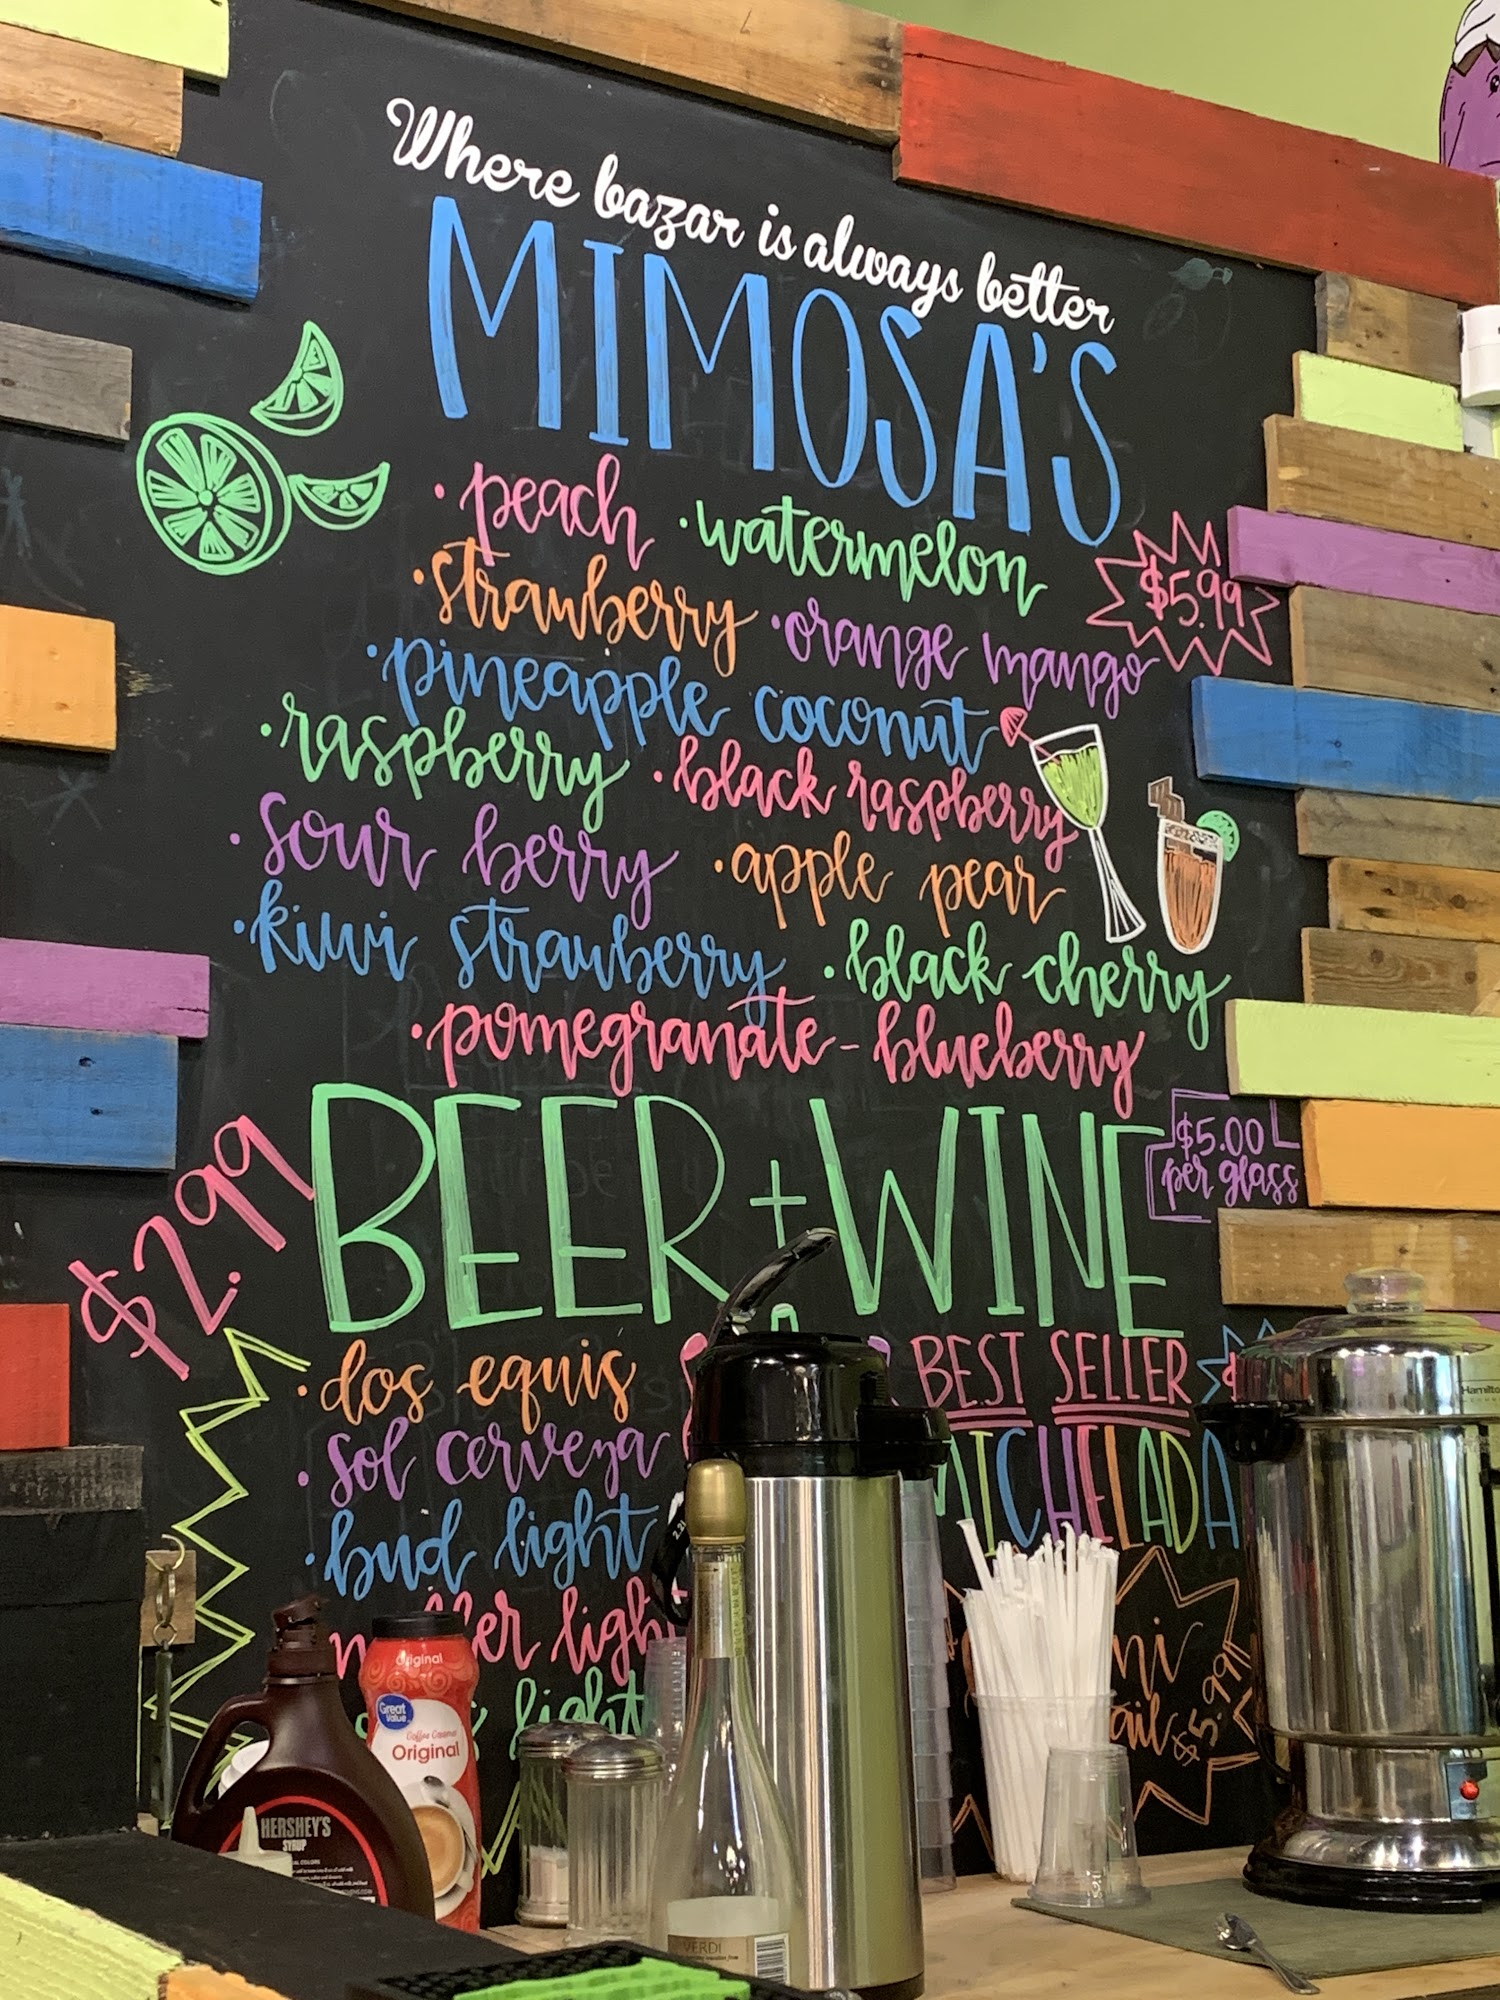 Where bazar is always better
MIMOSA'S
• peach • watermelon
$5.99
• strawberry • orange mango
• pineapple coconut
• raspberry • black raspberry
• sour berry • apple pear
• kiwi strawberry • black cherry
• pomegranate - blueberry
BEER + WINE
$5.00
per glass
$2.99
• dos equis
• sol cerveza
• bud light
light
light
BEST SELLER
MICHELADA
$5.99
Original
Great Value
Coffee Creamer
Original
HERSHEY'S
SYRUP
VERDI
Hamilton